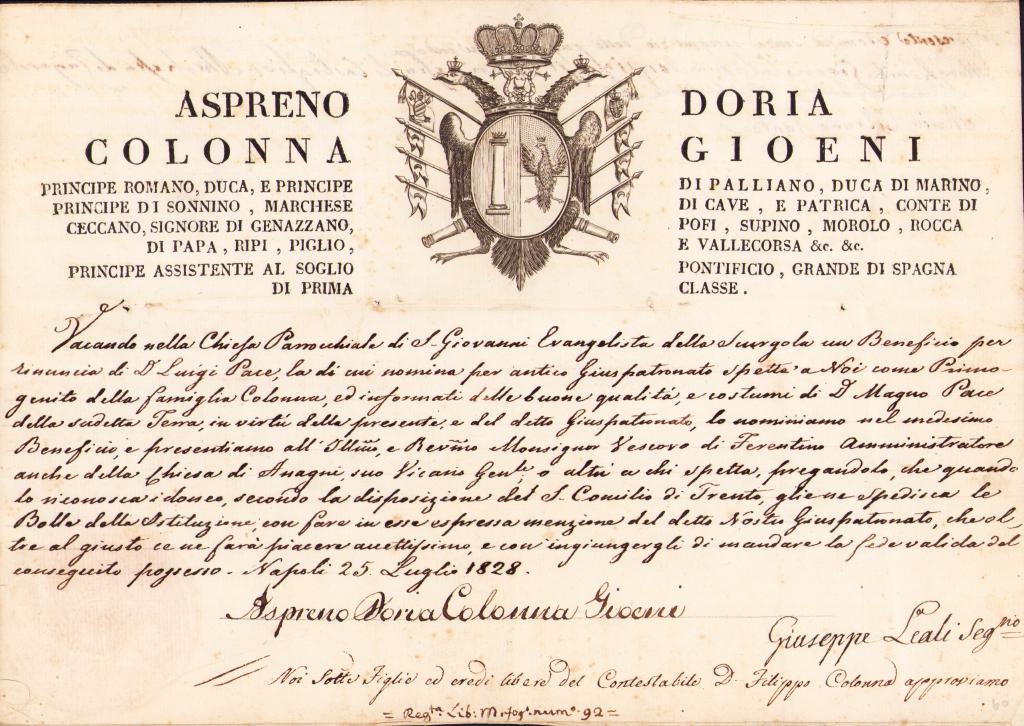 ASPRENO DORIA
COLONNA GIOENI
PRINCIPE ROMANO, DUCA, E PRINCIPE DI PALLIANO, DUCA DI MARINO,
PRINCIPE DI SONNINO, MARCHESE DI CAVE, E PATRICA, CONTE DI
CECCANO, SIGNORE DI GENAZZANO, POFI, SUPINO, MOROLO, ROCCA
DI PAPA, RIPI, PIGLIO, E VALLECORSA &c. &c.
PRINCIPE ASSISTENTE AL SOGLIO PONTIFICIO, GRANDE DI SPAGNA
DI PRIMA CLASSE.
Vacando nella Chiesa Parrocchiale di S. Giovanni Evangelista della Scurgola un Beneficio per
rinuncia di D. Luigi Pace, la di cui nomina per antico Giuspatronato spetta a Noi come Primo-
genito della famiglia Colonna, ed informati delle buone qualità, e costumi di D. Magno Pace
della sudetta Terra, in virtù della presente, e del detto Giuspatronato, lo nominiamo nel medesimo
Beneficio, e presentiamo all' Illmo, e Revmo Monsignor Vescovo di Ferentino Amministratore
anche della Chiesa di Anagni, suo Vicario Genle, o altri a chi spetta, pregandolo, che quando
lo riconosca idoneo, secondo la disposizione del S. Concilio di Trento, gliene spedisca le
Bolle della Istituzione, con fare in esse espressa menzione del detto Nostro Giuspatronato, che ol-
tre al giusto ce ne farà piacere accettissimo, e con ingiungergli di mandare la fede valida del
conseguito possesso. Napoli 25. Luglio 1828.
Aspreno Doria Colonna Gioeni
Giuseppe Leali Segrio
Noi Sotte Figlie ed eredi libere del Contestabile D. Filippo Colonna approviamo
= Regta Lib: M. fog. num. 92 =